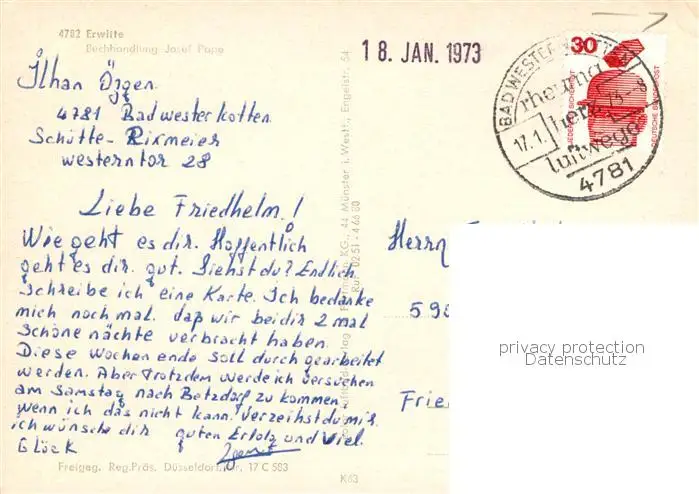 4782 Erwitte
Buchhandlung Josef Pape
18. JAN. 1973
BAD WESTERNKOTTEN
rheuma
herz
luftwege
17.1.73-8
4781
30
JEDERZEIT SICHERHEIT
DEUTSCHE BUNDESPOST
Ilhan Özgen
4781 Bad westerkotten
Schütte-Rixmeier
westerntor 28
Liebe Friedhelm!
Wie geht es dir. Hoffentlich
geht es dir gut. Siehst du? Endlich
schreibe ich eine Karte. Ich bedanke
mich noch mal. daß wir bei dir 2 mal
schöne nächte verbracht haben.
Diese Wochen ende soll durch gearbeitet
werden. Aber Trotzdem werde ich versuchen
am Samstag nach Betzdorf zu kommen
wenn ich das nicht kann. Verzeihst du mir.
ich wünsche dir guten Erfolg und Viel.
Glöck
Herrn
Frie
44 Münster i. Westf., Engelstr. 54
Ruf 02 51 - 4 66 80
privacy protection
Datenschutz
Freigeg. Reg.Präs. Düsseldorf, Nr. 17 C 583
K63